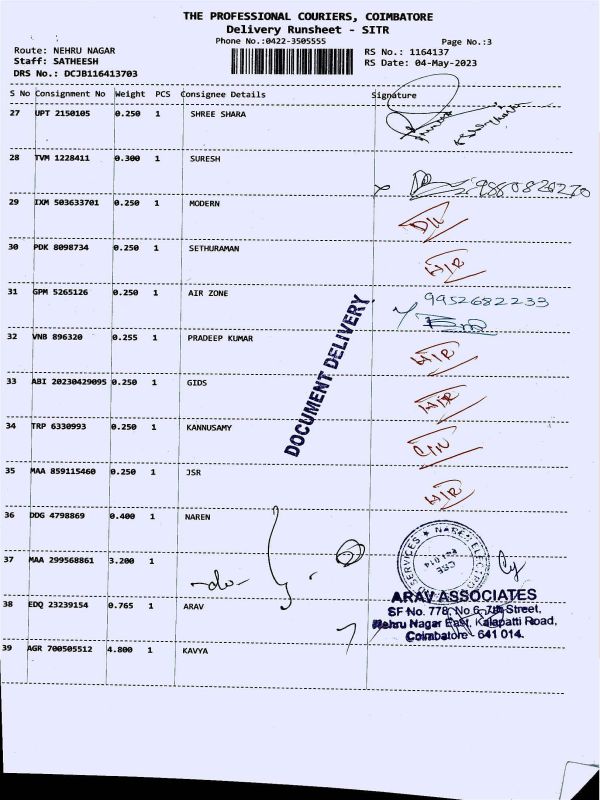 THE PROFESSIONAL COURIERS, COIMBATORE
Delivery Runsheet - SITR
Phone No.:0422-3505555
Page No.:3
Route: NEHRU NAGAR
RS No.: 1164137
Staff: SATHEESH
RS Date: 04-May-2023
DRS No.: DCJB116413703
S No Consignment No Weight PCS Consignee Details Signature
27 UPT 2150105 0.250 1 SHREE SHARA
28 TVM 1228411 0.300 1 SURESH
9880820270
29 IXM 503633701 0.250 1 MODERN
D/L
30 PDK 8098734 0.250 1 SETHURAMAN
H/R
31 GPM 5265126 0.250 1 AIR ZONE
9952682233
32 VNB 896320 0.255 1 PRADEEP KUMAR
H/R
33 ABI 20230429095 0.250 1 GIDS
H/R
DOCUMENT DELIVERY
34 TRP 6330993 0.250 1 KANNUSAMY
C/N
35 MAA 859115460 0.250 1 JSR
H/R
36 DDG 4798869 0.400 1 NAREN
37 MAA 299568861 3.200 1
-do-
38 EDQ 23239154 0.765 1 ARAV
ARAV ASSOCIATES
SF No. 778, No 6, 7th Street,
Nehru Nagar East, Kalapatti Road,
Coimbatore - 641 014.
39 AGR 700505512 4.800 1 KAVYA